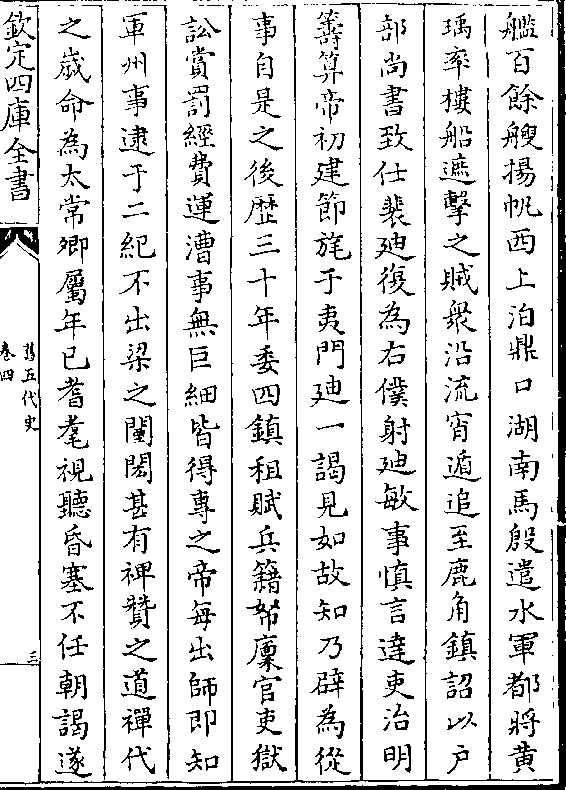 艦百餘艘揚帆西上泊鼎口湖南馬殷遣水軍都將黃
瑀率樓船遮擊之賊衆沿流宵遁追至鹿角鎮詔以戶
部尚書致仕裴廸復為右僕射廸敏事慎言達吏治明
籌算帝初建節旄于夷門廸一謁見如故知乃辟為從
事自是之後歴三十年委四鎮租賦兵籍帑廩官吏獄
訟賞罰經費運漕事無巨細皆得專之帝每出師即知
軍州事逮于二紀不出梁之閫閾甚有裨贊之道禪代
之歲命為太常卿屬年已耆耄視聽昏塞不任朝謁遂
欽定四庫全書
舊五代史
卷四
三